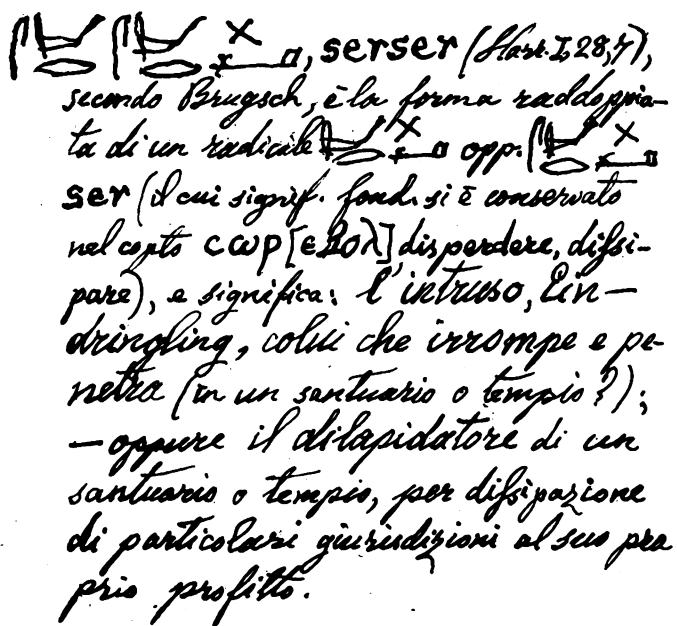 , serser (Harr. I, 28, 7),
secondo Brugsch, è la forma raddoppia-
ta di un radicale opp.
ser (il cui signif. fond. si è conservato
nel copto ⲥⲱⲣ [ⲉⲃⲟⲗ] disperdere, dissi-
pare), e significa: l'intruso, Ein-
dringling, colui che irrompe e pe-
netra (in un santuario o tempio?);
— oppure il dilapidatore di un
santuario o tempio, per dissipazione
di particolari giurisdizioni al suo pro
prio profitto.